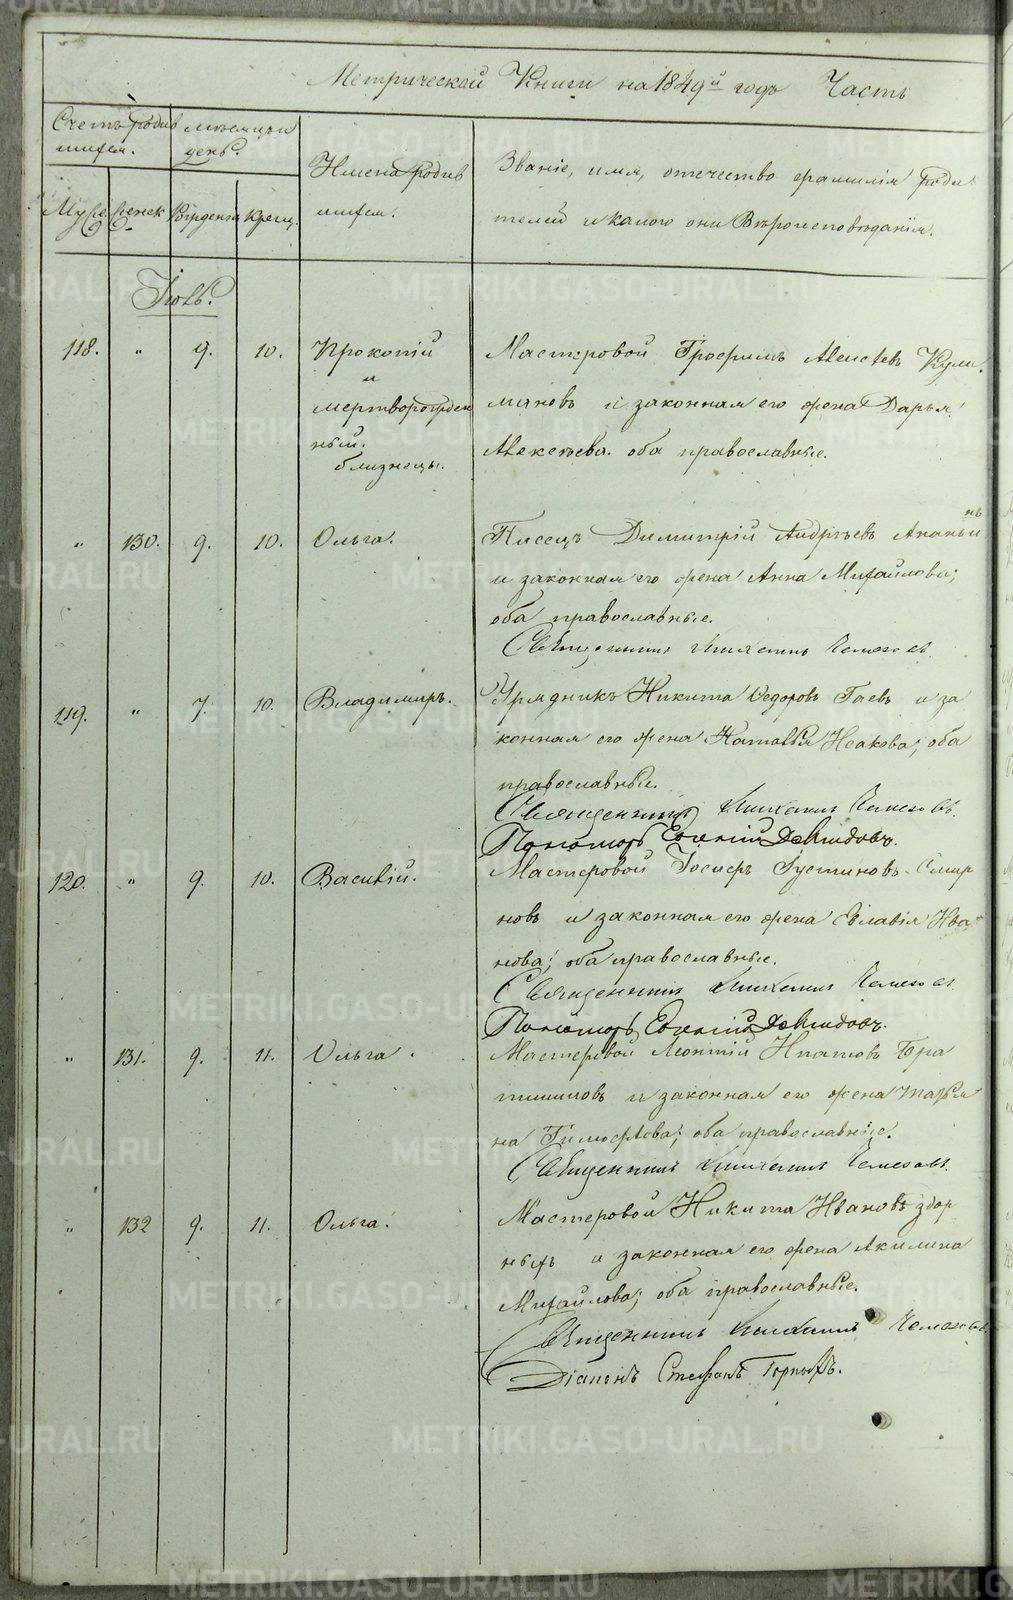 Метрической Книги на 1849й годъ Часть
Счетъ родив
шихся.
месяцъ и
день.
Имена родив
шихся.
Званіе, имя, отчество фамилія роди
телей и какого они Вѣроисповѣданія.
Муж. Женск. Рожденія Крещ.
Іюль.
118. " 9. 10. Прокопій
и
мертворожден
ный.
близнецы.
Мастеровой Трофимъ Алексѣевъ
и законная его жена Дарья
Алексѣева. оба православные.
" 130. 9. 10. Ольга.
Писецъ Димитрій Андрѣевъ Ананьинъ
и законная его жена Анна Михайлова;
оба православные.
Священникъ
119. " 7. 10. Владимиръ.
Урядникъ Никита Ѳедоровъ Гаевъ и за
конная его жена Наталья Исакова; оба
православные.
Священникъ
Пономарь Евгеній Давидовъ.
120. " 9. 10. Василій.
Мастеровой Іосифъ Іустиновъ Смир
новъ и законная его жена Ива
нова; оба православные.
Священникъ
Пономарь Евгеній Давидовъ.
" 131. 9. 11. Ольга.
Мастеровой Леонтій Ипатовъ
и законная его жена
на Тимофѣева; оба православные.
Священникъ
" 132 9. 11. Ольга.
Мастеровой Никита Ивановъ
и законная его жена Акилина
Михайлова; оба православные.
Священникъ
Діаконъ Стефанъ Горныхъ.
METRIKI.GASO-URAL.RU